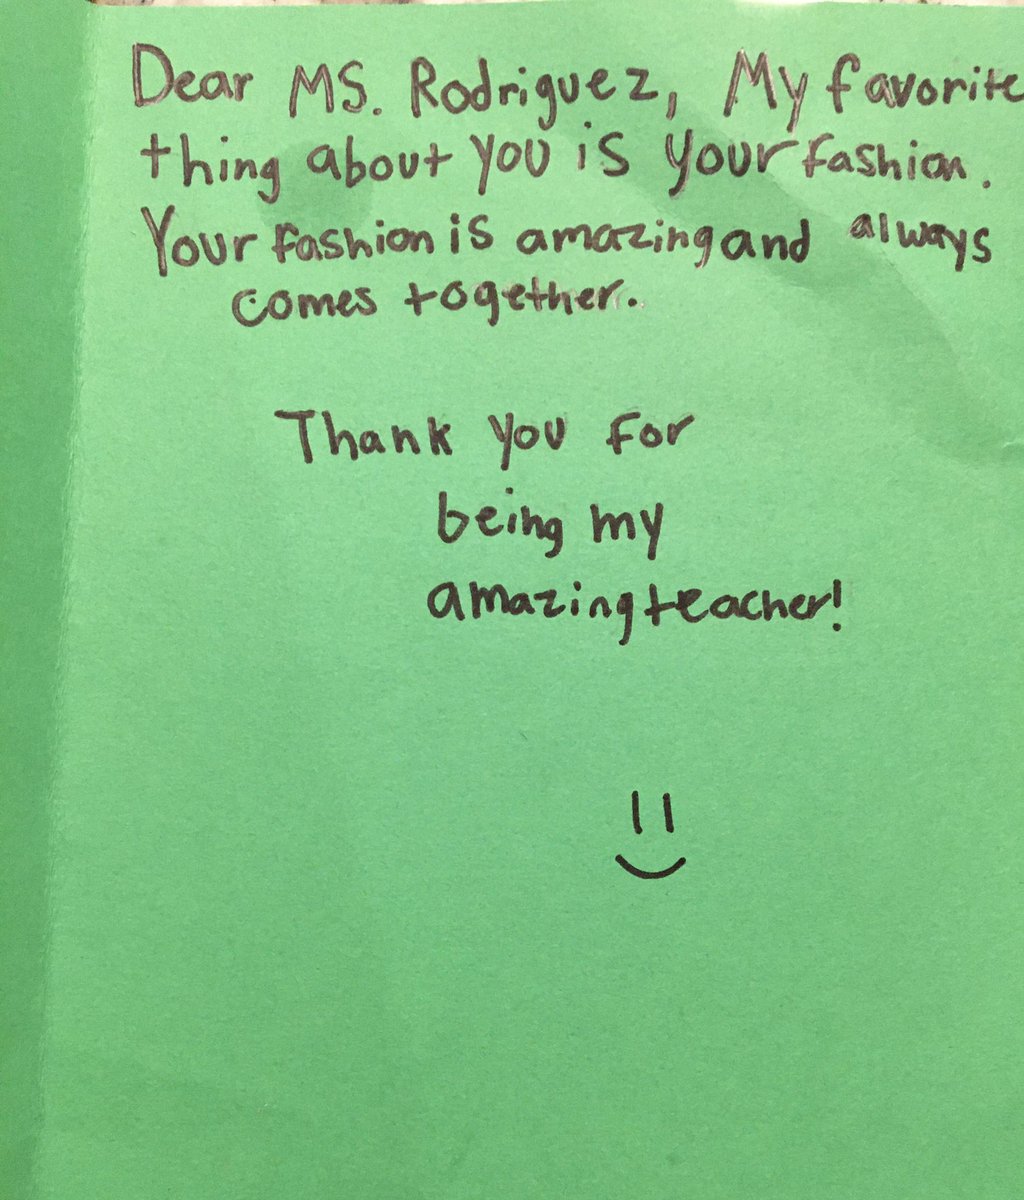 Dear MS. Rodriguez, My favorite
thing about you is your fashion.
Your fashion is amazing and always
comes together.
Thank you for
being my
amazing teacher!